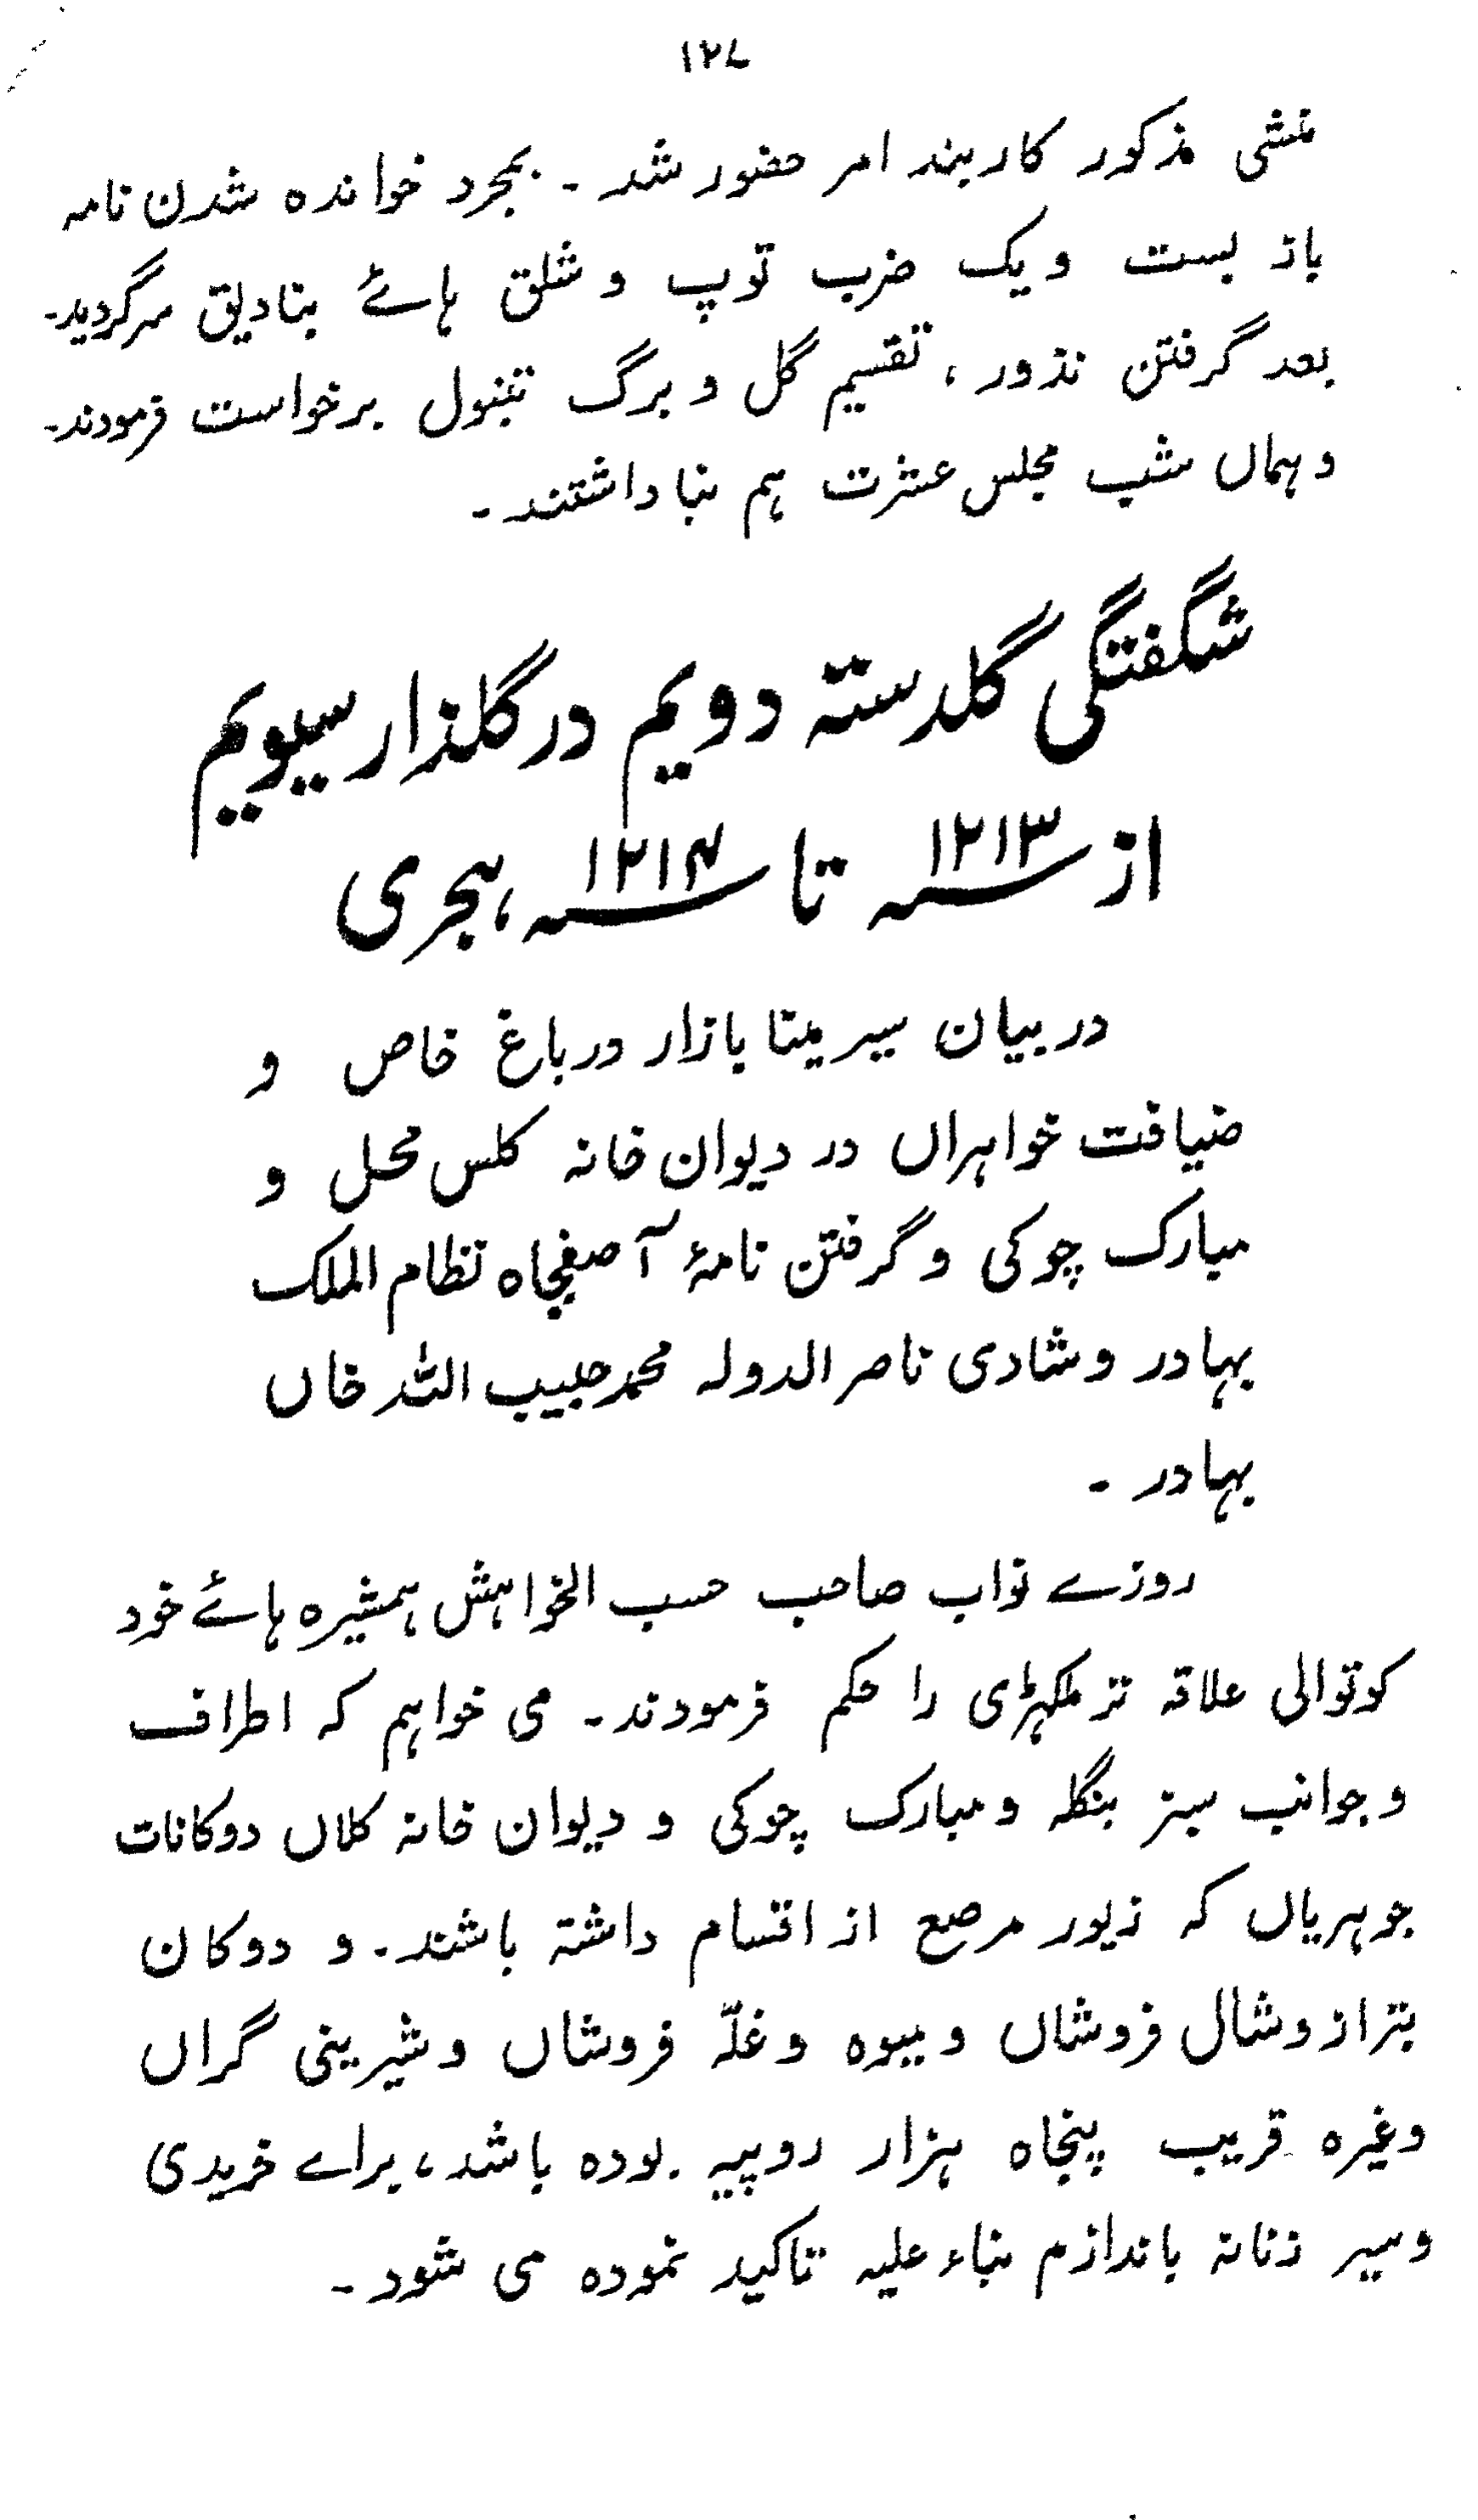 ۱۲۷
منشی مذکور کاربند امر حضور شد ۔ بمجرد خواندہ شدن نامہ
باز بست و یک ضرب توپ و شلق ہائے بنادیق سر گردید۔
بعد گرفتن نذور ، تقسیم گل و برگ تنبول برخواست فرمودند۔
و ہماں شب مجلس عشرت ہم بنا داشتند ۔
شگفتگی گلدستہ دویم در گلذار سیویم
از ۱۲۱۳؁ تا ۱۲۱۴؁ ہجری
در بیان سیر مینا بازار در باغ خاص و
ضیافت خواہراں در دیوان خانہ کلس محل و
مبارک چوکی و گرفتن نامۂ آصفجاہ نظام الملک
بہادر و شادی ناصر الدولہ محمد حبیب اللہ خاں
بہادر ۔
روزے نواب صاحب حسب الخواہش ہمشیرہ ہائے خود
کوتوالی علاقہ تر ملکہڑی را حکم فرمودند۔ می خواہم کہ اطراف
و جوانب سبز بنگلہ و مبارک چوکی و دیوان خانہ کلاں دوکانات
جوہریاں کہ زیور مرصع از اقسام داشتہ باشند۔ و دوکان
بزاز و شال فروشاں و میوہ و غلّہ فروشاں و شیرینی گراں
وغیرہ قریب پنجاہ ہزار روپیہ بودہ باشد، براے خریدی
و سیر زنانہ باندازم بناء علیہ تاکید نمودہ می شود ۔